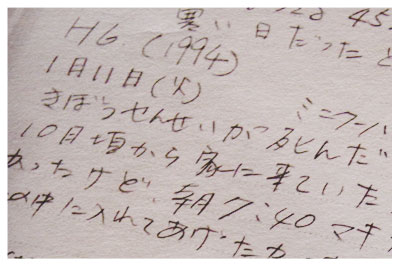 寒い日だったと
H6 (1994)
1月11日(火)
きぼうせんせいが死んだ ミニクーパ
10月頃から家に来ていた
かったけど、朝7:40 マキ
の中に入れてあげたかっ